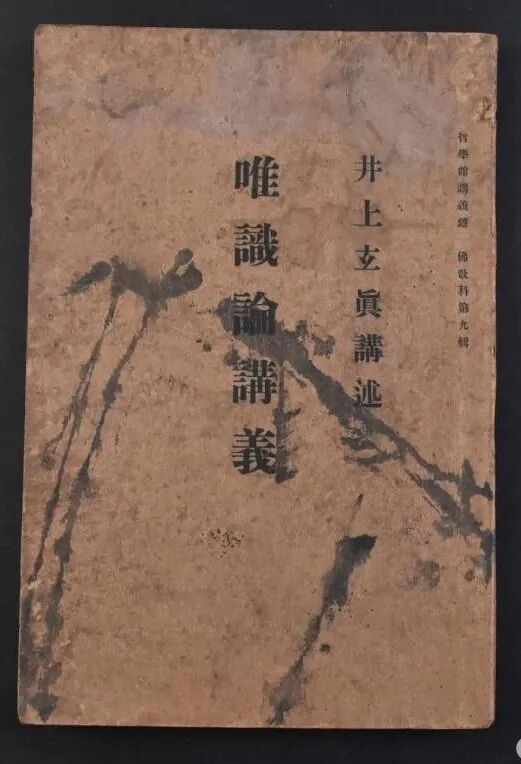 哲學館講義錄　佛敎科第九輯
井上玄眞講述
唯識論講義